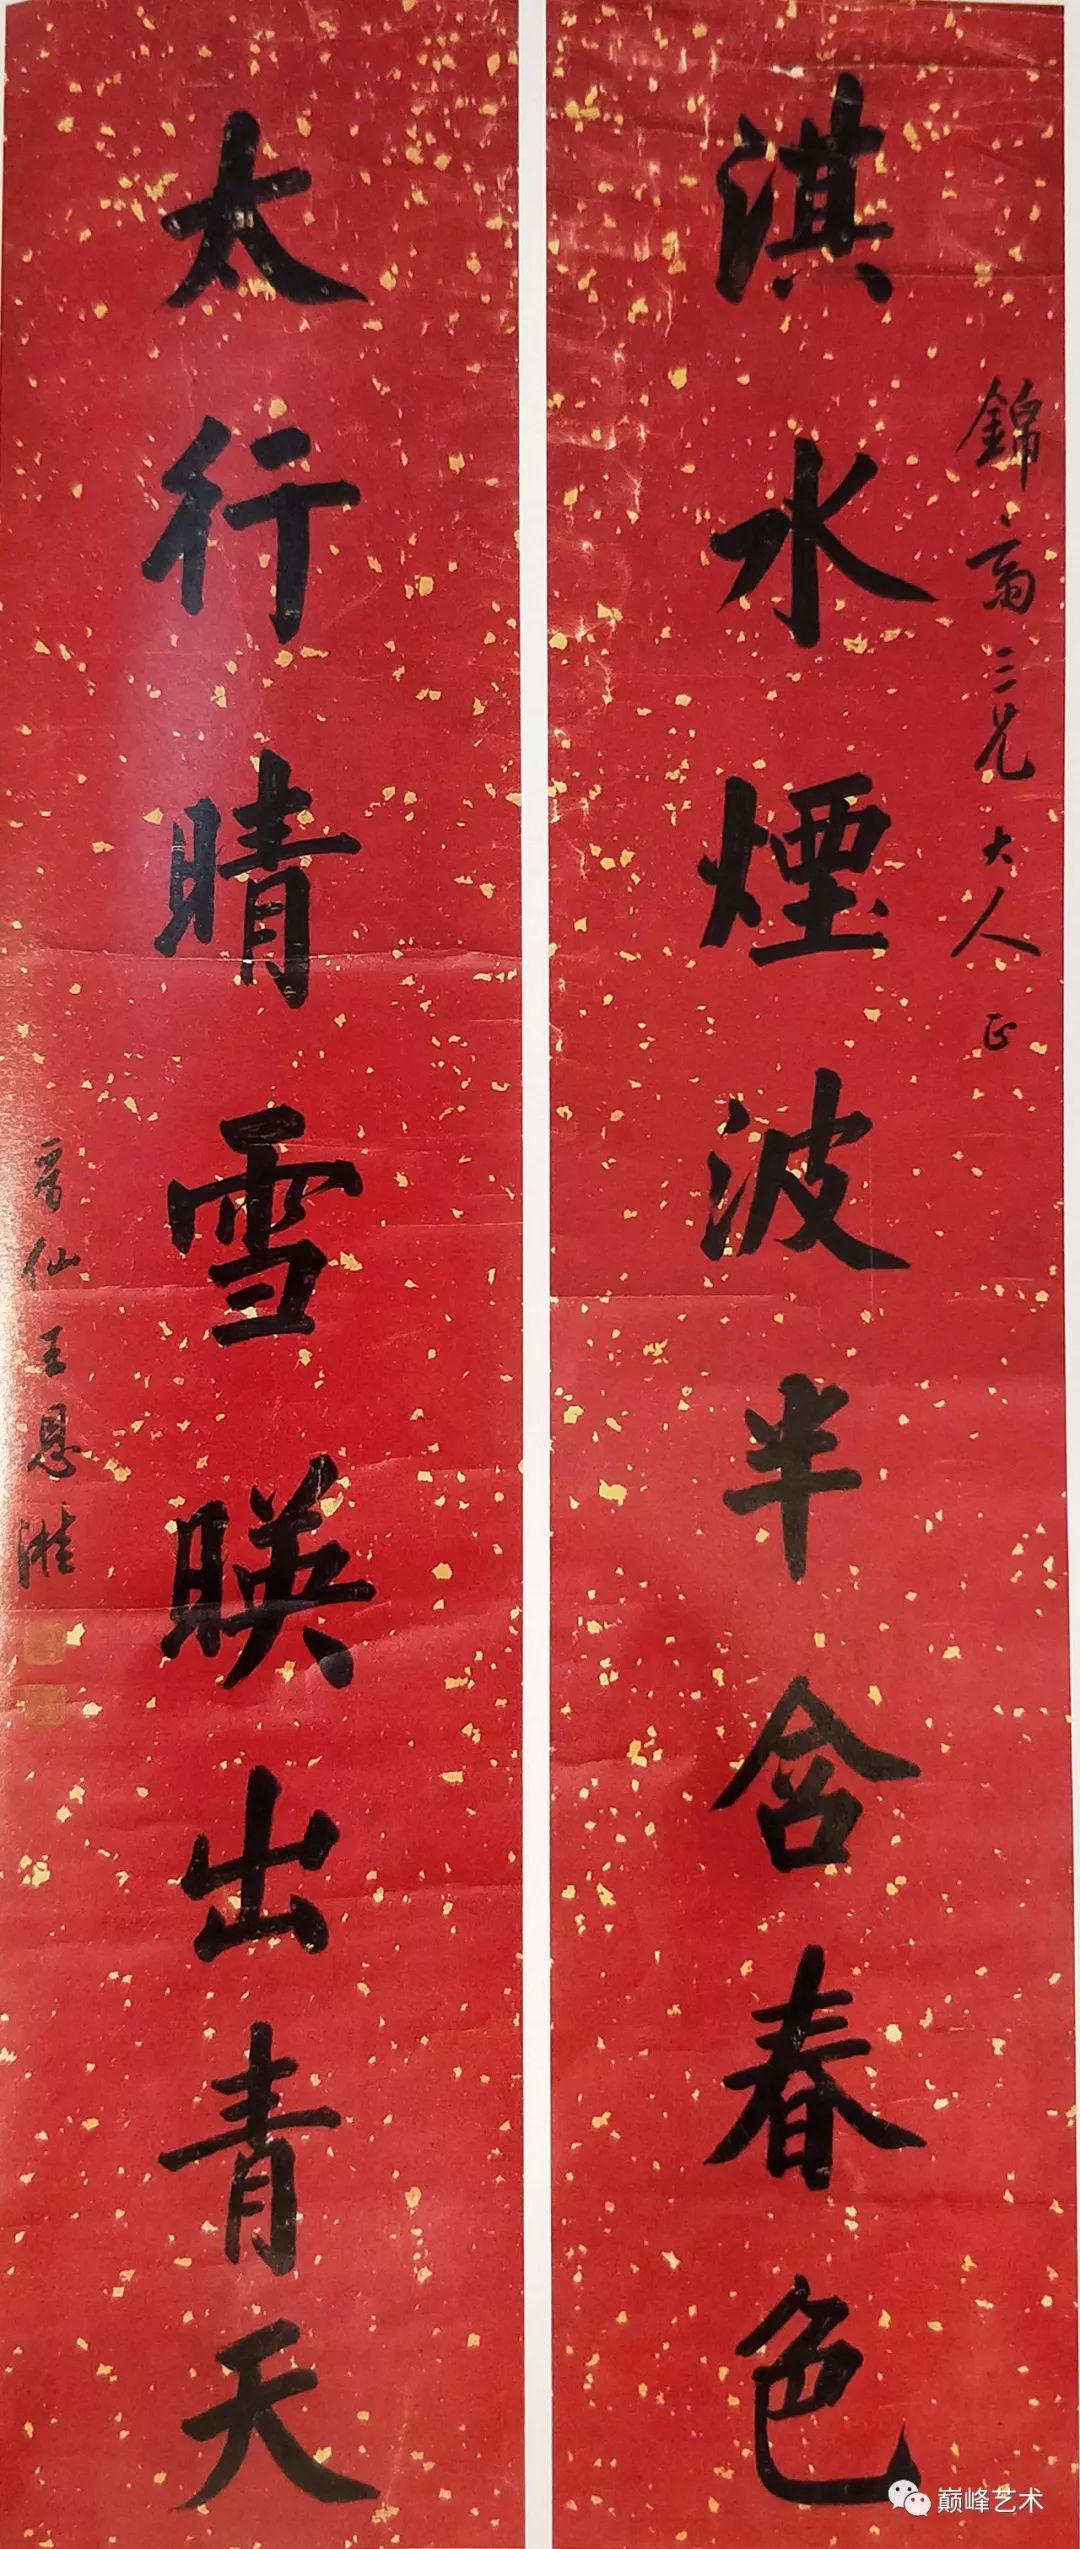 淇水煙波半含春色
錦齋三兄大人正
太行晴雪暎出青天
王恩湛
巅峰艺术